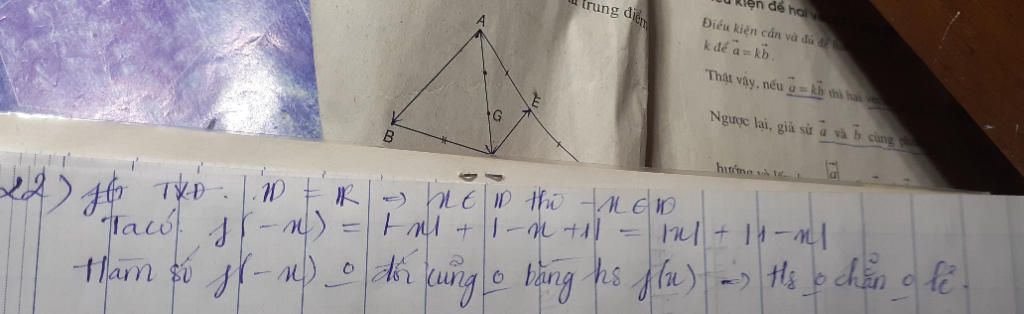 trung điểm
kiện để hai
Điều kiện cần và đủ để
k để a = kb.
Thật vậy, nếu a = kb thì hai
Ngược lại, giả sử a và b cùng
|a|
A
E
G
B
22) TXĐ: D = R => x ∈ D thì -x ∈ D
Ta có: f(-x) = |-x| + |-x+1| = |x| + |1-x|
Hàm số f(-x) o đối cũng o bằng hs f(x) => Hs o chẵn o lẻ.